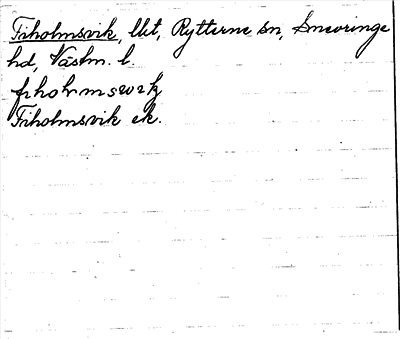 Friholmsvik, lht, Rytterne sn, Snevringe
hd, Västm. l.
Friholmsvik ek.